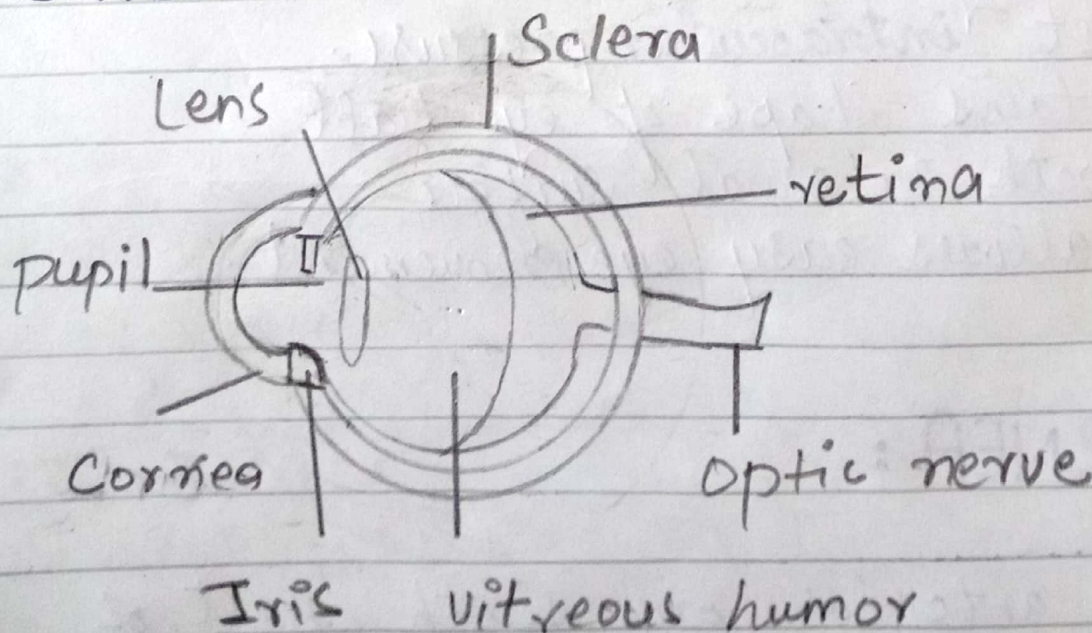 Sclera
Lens
retina
pupil
Cornea
optic nerve
Iris
vitreous humor